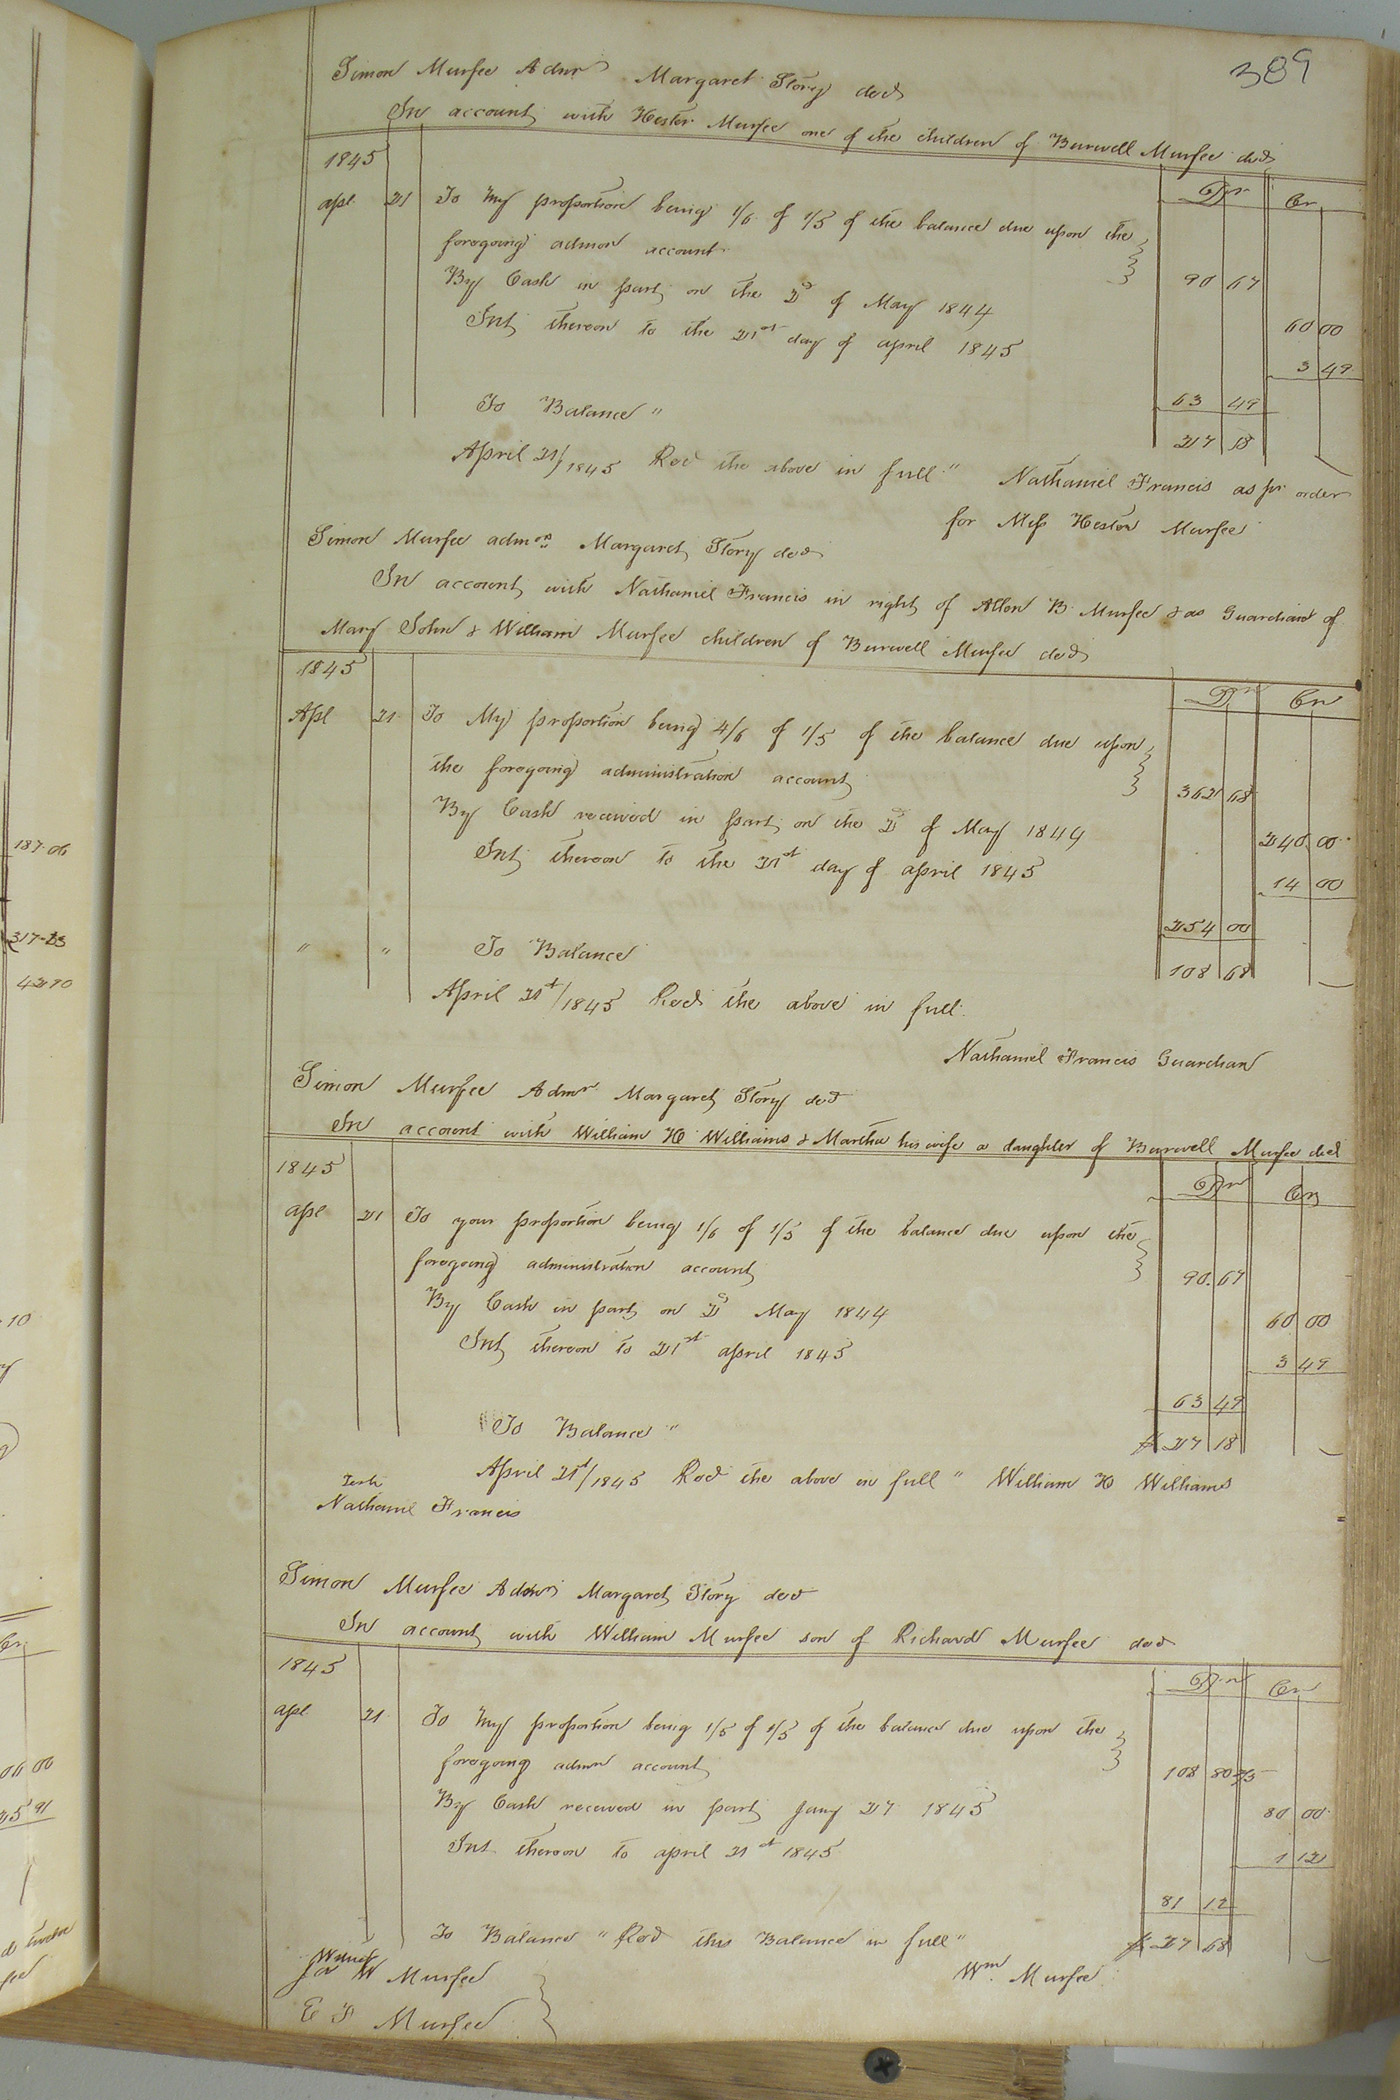 389
Simon Murfee Admr Margaret Story decd
In account with Hester Murfee one of the children of Burwell Murfee decd
1845
Dr Cr
apl 21 To My proportion being 1/6 of 1/5 of the balance due upon the
foregoing admon account 90 67
By Cash in part on the 2d of May 1844 60 00
Int thereon to the 21st day of april 1845 3 49
63 49
To Balance " 27 18
April 21/1845 Recd the above in full " Nathaniel Francis as pr order
for Miss Hester Murfee
Simon Murfee admon Margaret Story decd
In account with Nathaniel Francis in right of Allen B Murfee & as Guardian of
Mary John & William Murfee children of Burwell Murfee decd
1845
Dr Cr
Apl 21 To My proportion being 4/6 of 1/5 of the balance due upon
the foregoing administration account 362 68
By Cash received in part on the 2d of May 1844 240 00
Int thereon to the 21st day of april 1845 14 00
254 00
" " To Balance 108 68
April 21st/1845 Recd the above in full
Nathaniel Francis Guardian
Simon Murfee Admr Margaret Story decd
In account with William H Williams & Martha his wife a daughter of Burwell Murfee decd
1845
Dr Cr
apl 21 To your proportion being 1/6 of 1/5 of the balance due upon the
foregoing administration account 90.67
By Cash in part on 2d May 1844 60 00
Int thereon to 21st april 1845 3 49
63 49
To Balance " $ 27 18
April 21st/1845 Recd the above in full " William H Williams
Teste
Nathaniel Francis
Simon Murfee Admr Margaret Story decd
In account with William Murfee son of Richard Murfee decd
1845
Dr Cr
apl 21 To My proportion being 1/5 of 1/5 of the balance due upon the
foregoing admn account 108 80
By Cash received in part Jany 27 1845 80 00
Int thereon to april 21st 1845 1 12
81 12
To Balance " Recd this Balance in full " $ 27 68
W Murfee Wm. Murfee
E P Murfee
187.06
317-23
4270